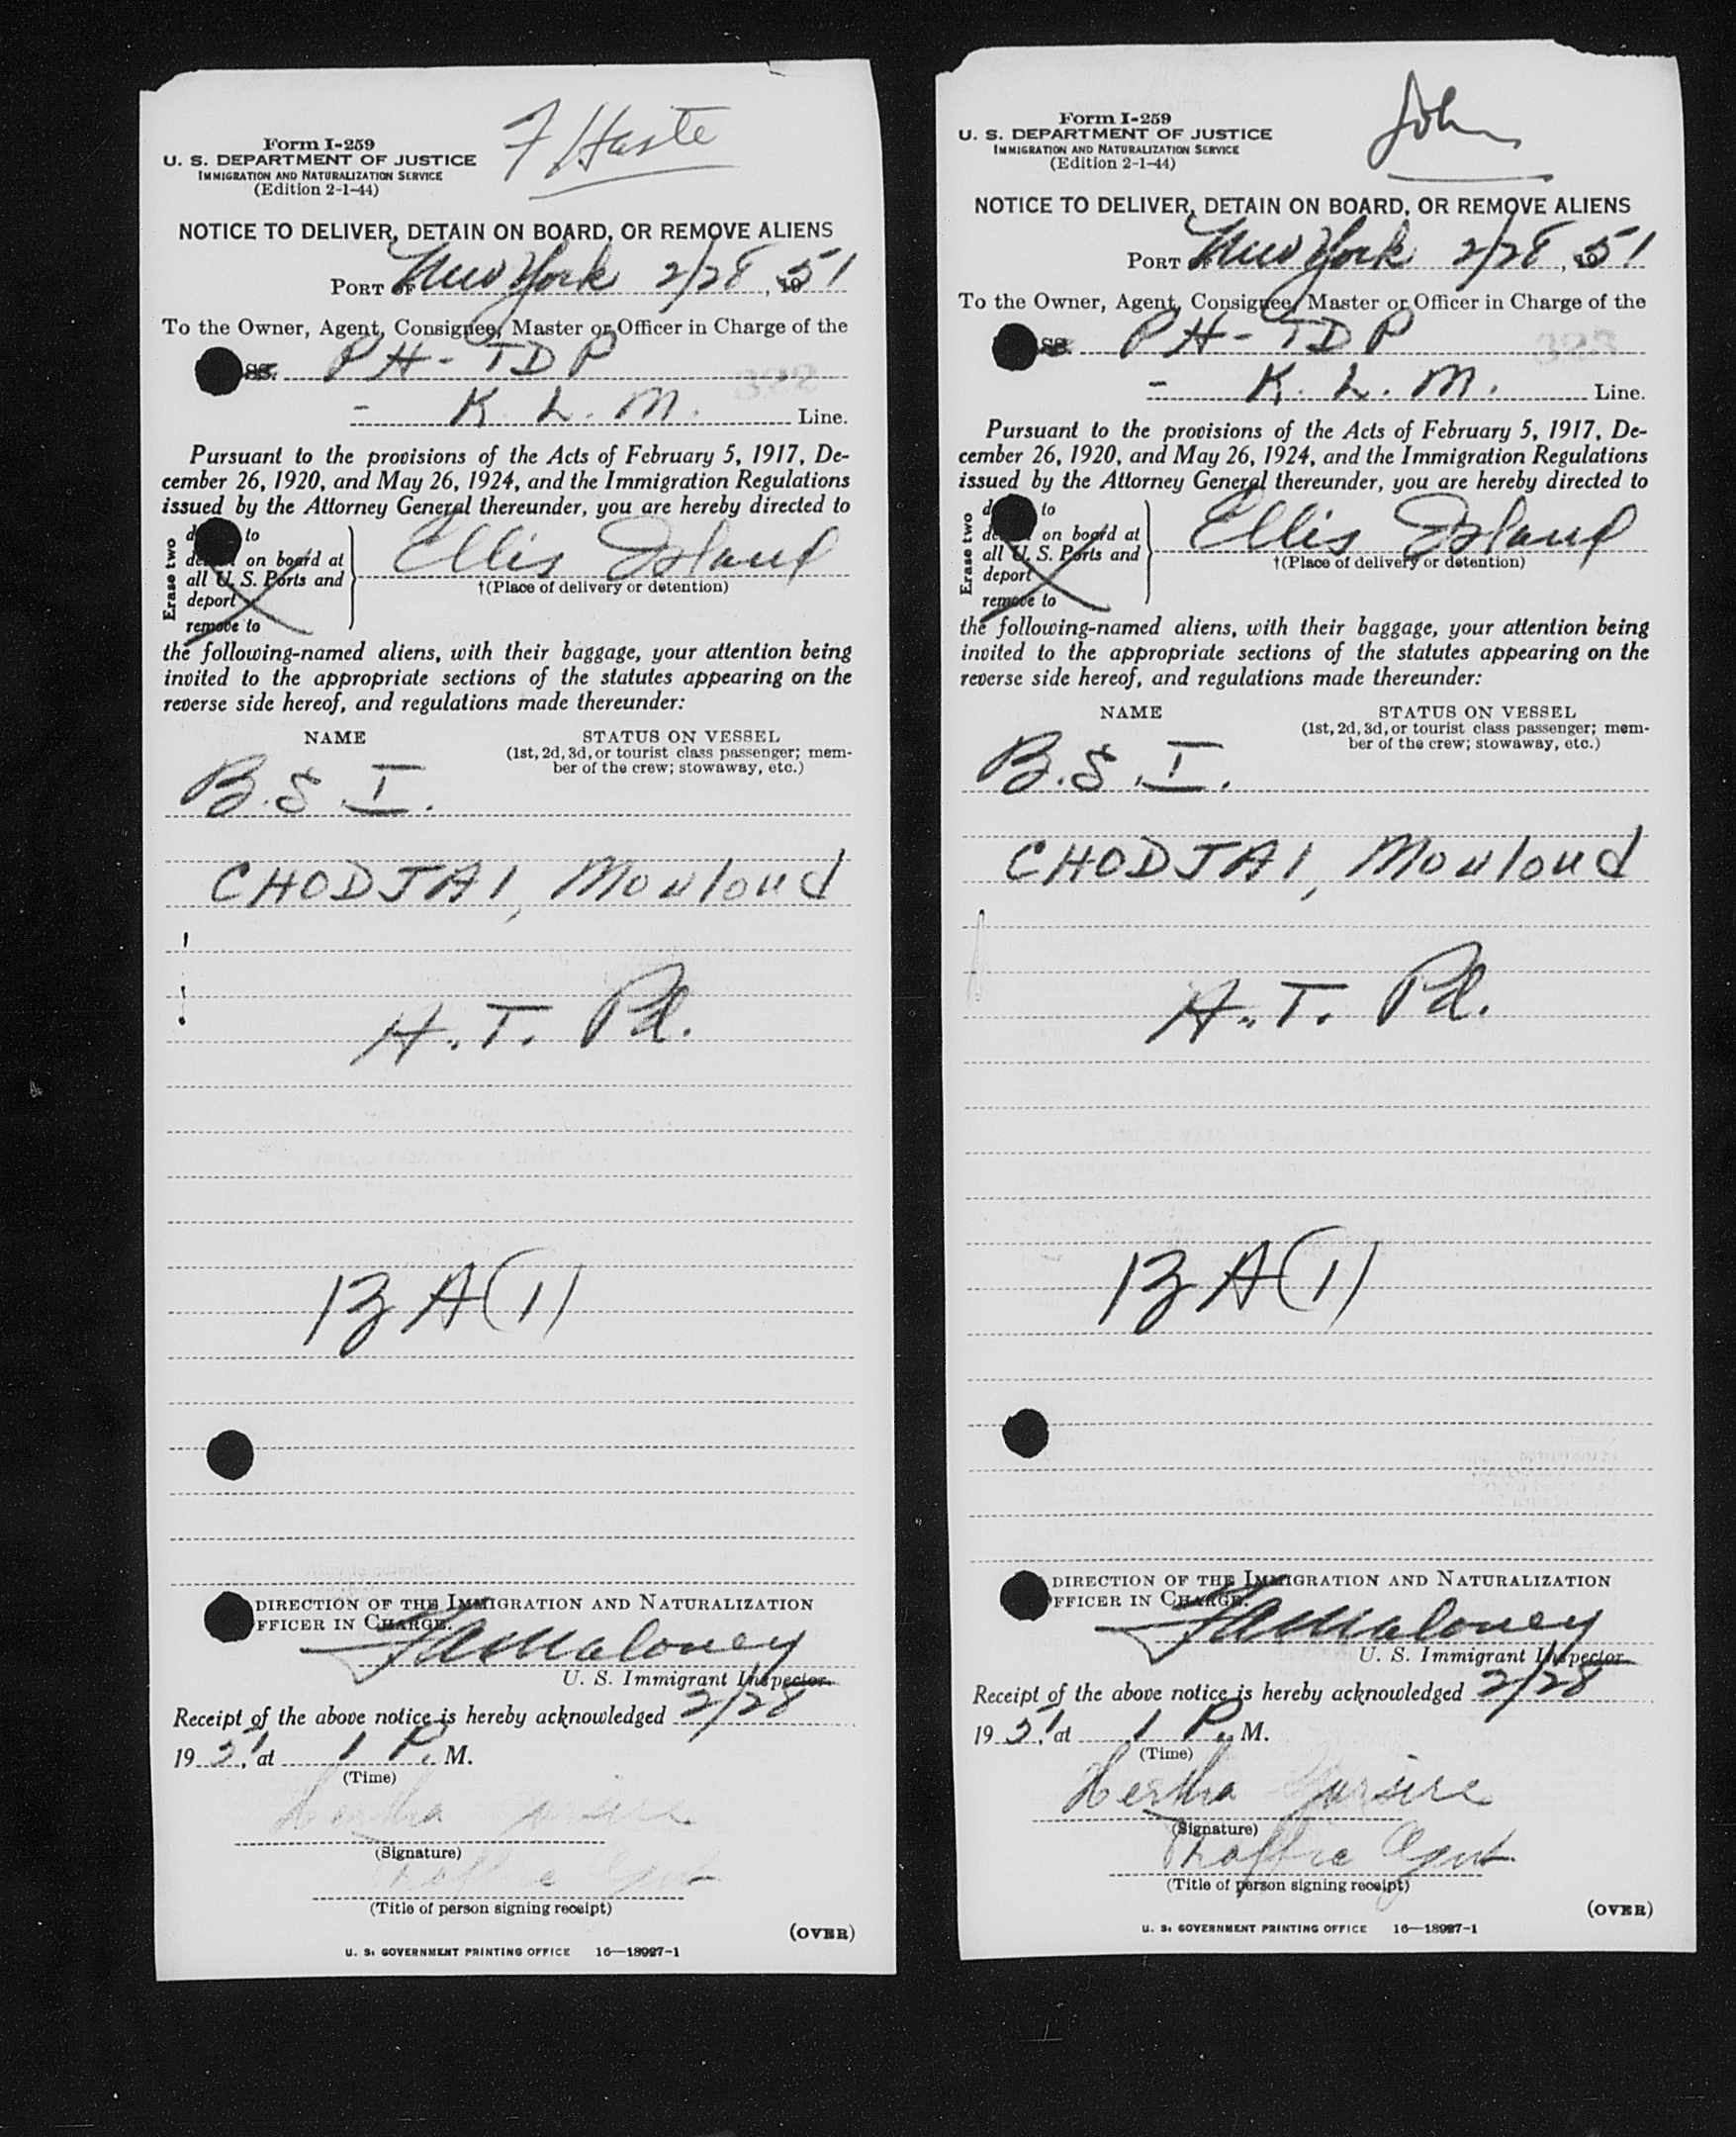 Form I-259
U. S. DEPARTMENT OF JUSTICE
IMMIGRATION AND NATURALIZATION SERVICE
(Edition 2-1-44)
NOTICE TO DELIVER, DETAIN ON BOARD, OR REMOVE ALIENS
PORT OF New York 2/28, 1951
To the Owner, Agent, Consignee, Master or Officer in Charge of the
SS. PH-TDP
- K. L. M. Line.
Pursuant to the provisions of the Acts of February 5, 1917, De-
cember 26, 1920, and May 26, 1924, and the Immigration Regulations
issued by the Attorney General thereunder, you are hereby directed to
Erase two
to
on board at
all U. S. Ports and
deport
remove to
Ellis Island
†(Place of delivery or detention)
the following-named aliens, with their baggage, your attention being
invited to the appropriate sections of the statutes appearing on the
reverse side hereof, and regulations made thereunder:
NAME STATUS ON VESSEL
(1st, 2d, 3d, or tourist class passenger; mem-
ber of the crew; stowaway, etc.)
B.S.I.
CHODJAI, Mouloud
H.T. Pd.
A(1)
DIRECTION OF THE IMMIGRATION AND NATURALIZATION
FFICER IN CHARGE.
Maloney
U. S. Immigrant Inspector
Receipt of the above notice is hereby acknowledged 2/28
1951, at 1 P. M.
(Time)
Hertha
(Signature)
(Title of person signing receipt)
(OVER)
U. S. GOVERNMENT PRINTING OFFICE 16—18927-1
John
Form I-259
U. S. DEPARTMENT OF JUSTICE
IMMIGRATION AND NATURALIZATION SERVICE
(Edition 2-1-44)
NOTICE TO DELIVER, DETAIN ON BOARD, OR REMOVE ALIENS
PORT OF New York 2/28, 1951
To the Owner, Agent, Consignee, Master or Officer in Charge of the
SS. PH-TDP
- K. L. M. Line.
Pursuant to the provisions of the Acts of February 5, 1917, De-
cember 26, 1920, and May 26, 1924, and the Immigration Regulations
issued by the Attorney General thereunder, you are hereby directed to
Erase two
to
on board at
all U. S. Ports and
deport
remove to
Ellis Island
†(Place of delivery or detention)
the following-named aliens, with their baggage, your attention being
invited to the appropriate sections of the statutes appearing on the
reverse side hereof, and regulations made thereunder:
NAME STATUS ON VESSEL
(1st, 2d, 3d, or tourist class passenger; mem-
ber of the crew; stowaway, etc.)
B.S.I.
CHODJAI, Mouloud
H.T. Pd.
A(1)
DIRECTION OF THE IMMIGRATION AND NATURALIZATION
FFICER IN CHARGE.
Maloney
U. S. Immigrant Inspector
Receipt of the above notice is hereby acknowledged 2/28
1951, at 1 P. M.
(Time)
Hertha
(Signature)
Traffic Agent
(Title of person signing receipt)
(OVER)
U. S. GOVERNMENT PRINTING OFFICE 16—18927-1